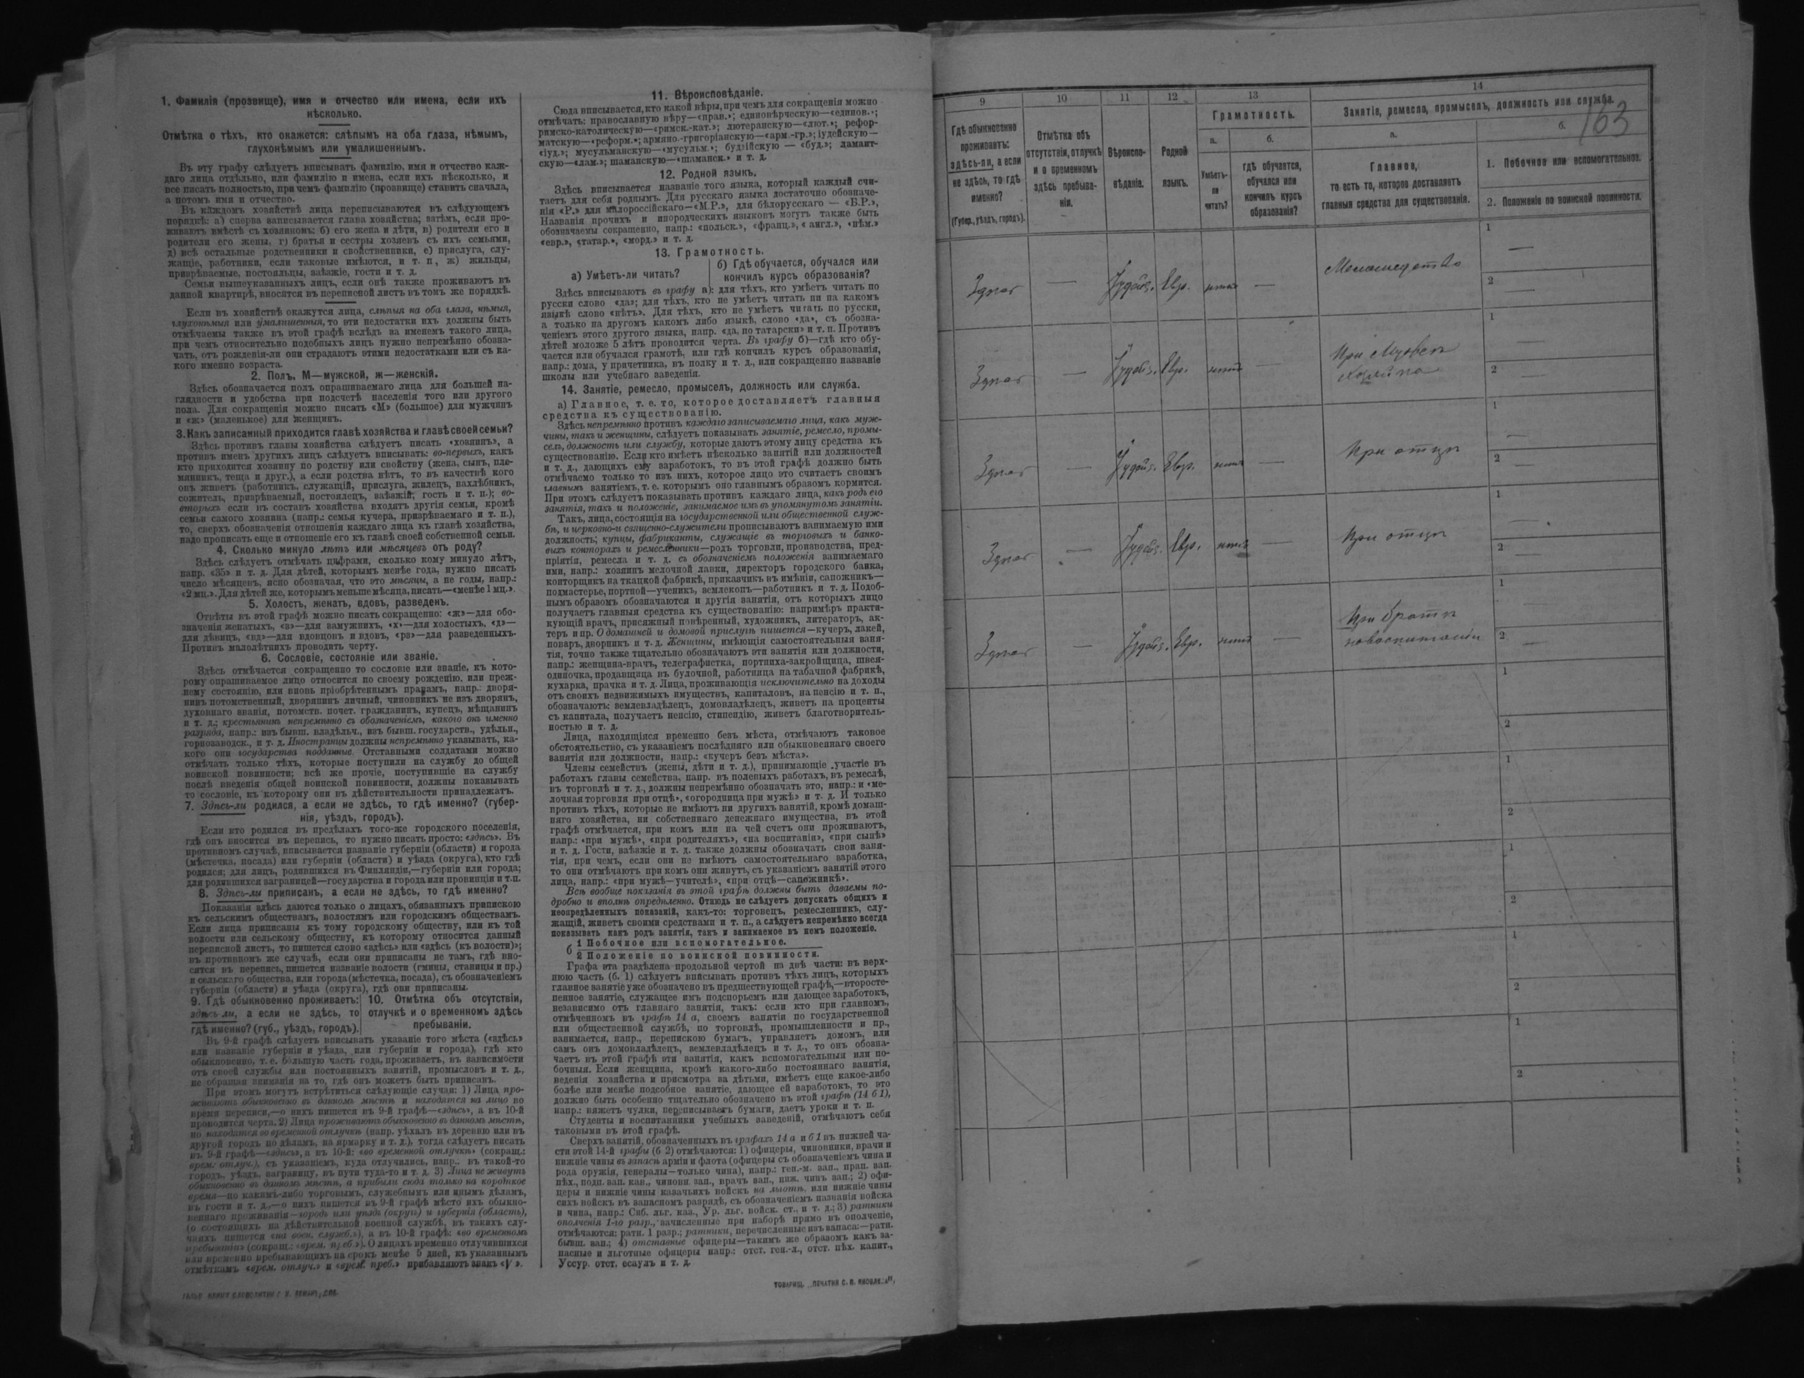 1. Фамилія (прозвище), имя и отчество или имена, если ихъ
нѣсколько.
Отмѣтка о тѣхъ, кто окажется: слѣпымъ на оба глаза, нѣмымъ,
глухонѣмымъ или умалишеннымъ.
Въ эту графу слѣдуетъ вписывать фамилію, имя и отчество каж-
даго лица отдѣльно, или фамилію и имена, если ихъ нѣсколько, и
все писать полностью, при чемъ фамилію (прозвище) ставить сначала,
а потомъ имя и отчество.
Въ каждомъ хозяйствѣ лица переписываются въ слѣдующемъ
порядкѣ: а) сперва записывается глава хозяйства; затѣмъ, если про-
живаютъ вмѣстѣ съ хозяиномъ: б) его жена и дѣти, в) родители его и
родители его жены, г) братья и сестры хозяевъ съ ихъ семьями,
д) всѣ остальные родственники и свойственники, е) прислуга, слу-
жащіе, работники, если таковые имѣются, и т. п., ж) жильцы,
призрѣваемые, постояльцы, заѣзжіе, гости и т. д.
Семьи вышеуказанныхъ лицъ, если онѣ также проживаютъ въ
данной квартирѣ, вносятся въ переписной листъ въ томъ же порядкѣ.
Если въ хозяйствѣ окажутся лица, слѣпыя на оба глаза, нѣмыя,
глухонѣмыя или умалишенныя, то эти недостатки ихъ должны быть
отмѣчаемы также въ этой графѣ вслѣдъ за именемъ такого лица,
при чемъ относительно подобныхъ лицъ нужно непремѣнно обозна-
чать, отъ рожденія-ли они страдаютъ этими недостатками или съ ка-
кого именно возраста.
2. Полъ. М—мужской, ж—женскій.
Здѣсь обозначается полъ опрашиваемаго лица для большей на-
глядности и удобства при подсчетѣ населенія того или другого
пола. Для сокращенія можно писать «М» (большое) для мужчинъ
и «ж» (маленькое) для женщинъ.
3. Какъ записанный приходится главѣ хозяйства и главѣ своей семьи?
Здѣсь противъ главы хозяйства слѣдуетъ писать «хозяинъ», а
противъ именъ другихъ лицъ слѣдуетъ вписывать: во-первыхъ, какъ
кто приходится хозяину по родству или свойству (жена, сынъ, пле-
мянникъ, тетка и друг.), а если родства нѣтъ, то въ качествѣ кого
онъ живетъ (работникъ, служащій, прислуга, жилецъ, нахлѣбникъ,
сожитель, призрѣваемый, постоялецъ, заѣзжій, гость и т. п.); во-
вторыхъ если въ составъ хозяйства входятъ другія семьи, кромѣ
семьи самого хозяина (напр.: семья кучера, призрѣваемаго и т. п.),
то, сверхъ обозначенія отношенія каждаго лица къ главѣ хозяйства,
надо прописать еще и отношеніе его къ главѣ своей собственной семьи.
4. Сколько минуло лѣтъ или мѣсяцевъ отъ роду?
Здѣсь слѣдуетъ отмѣчать цифрами, сколько кому минуло лѣтъ,
напр. «35» и т. д. Для дѣтей, которымъ менѣе года, нужно писать
число мѣсяцевъ, ясно обозначая, что это мѣсяцы, а не годы, напр.:
«2 мц.». Для дѣтей же, которымъ меньше мѣсяца, писать—«менѣе 1 мц.».
5. Холостъ, женатъ, вдовъ, разведенъ.
Отвѣты въ этой графѣ можно писать сокращенно: «ж»—для обо-
значенія женатыхъ, «з»—для замужнихъ, «х»—для холостыхъ, «д»—
для дѣвицъ, «вд»—для вдовцовъ и вдовъ, «рз»—для разведенныхъ.
Противъ малолѣтнихъ проводить черту.
6. Сословіе, состояніе или званіе.
Здѣсь отмѣчается сокращенно то сословіе или званіе, къ кото-
рому опрашиваемое лицо относится по своему рожденію, или преж-
нему состоянію, или вновь пріобрѣтеннымъ правамъ, напр.: дворя-
нинъ потомственный, дворянинъ личный, чиновникъ не изъ дворянъ,
духовнаго званія, потомств. почет. гражданинъ, купецъ, мѣщанинъ
и т. д.; крестьянинъ непремѣнно съ обозначеніемъ, какого онъ именно
разряда, напр.: изъ бывш. владѣльч., изъ бывш. государств., удѣльн.,
горнозаводск., и т. д. Иностранцы должны непремѣнно указывать, ка-
кого они государства подданные. Отставными солдатами можно
отмѣчать только тѣхъ, которые поступили на службу до общей
воинской повинности; всѣ же прочіе, поступившіе на службу
послѣ введенія общей воинской повинности, должны показывать
то сословіе, къ которому они въ дѣйствительности принадлежатъ.
7. Здѣсь-ли родился, а если не здѣсь, то гдѣ именно? (губер-
нія, уѣздъ, городъ).
Если кто родился въ предѣлахъ того-же городского поселенія,
гдѣ онъ вносится въ перепись, то нужно писать просто: «здѣсь». Въ
противномъ случаѣ, вписывается названіе губерніи (области) и города
(мѣстечка, посада) или губерніи (области) и уѣзда (округа), кто гдѣ
родился; для лицъ, родившихся въ Финляндіи,—губернія или города;
для родившихся заграницей—государства и города или провинція и т.п.
8. Здѣсь-ли приписанъ, а если не здѣсь, то гдѣ именно?
Показанія здѣсь даются только о лицахъ, обязанныхъ припискою
къ сельскимъ обществамъ, волостямъ или городскимъ обществамъ.
Если лица приписаны къ тому городскому обществу, или къ той
волости или сельскому обществу, къ которому относится данный
переписной листъ, то пишется слово «здѣсь» или «здѣсь (къ волости)»;
въ противномъ же случаѣ, если они приписаны не тамъ, гдѣ вно-
сятся въ перепись, пишется названіе волости (гмины, станицы и пр.)
и сельскаго общества, или города (мѣстечка, посада), съ обозначеніемъ
губерніи (области) и уѣзда (округа), гдѣ они приписаны.
9. Гдѣ обыкновенно проживаетъ:
здѣсь ли, а если не здѣсь, то
гдѣ именно? (губ., уѣздъ, городъ).
10. Отмѣтка объ отсутствіи,
отлучкѣ и о временномъ здѣсь
пребываніи.
Въ 9-й графѣ слѣдуетъ вписывать указаніе того мѣста («здѣсь»
или названіе губерніи и уѣзда, или губерніи и города), гдѣ кто
обыкновенно, т. е. большую часть года, проживаетъ, въ зависимости
отъ своей службы или постоянныхъ занятій, промысловъ и т. д.,
не обращая вниманія на то, гдѣ онъ можетъ быть приписанъ.
При этомъ могутъ встрѣтиться слѣдующіе случаи: 1) Лица про-
живаютъ обыкновенно въ данномъ мѣстѣ и находятся на лицо во
время переписи,—о нихъ пишется въ 9-й графѣ—«здѣсь», а въ 10-й
проводится черта. 2) Лица проживаютъ обыкновенно въ данномъ мѣстѣ,
но находятся во временной отлучкѣ (напр. уѣхалъ въ деревню или въ
другой городъ по дѣламъ, на ярмарку и т. д.), тогда слѣдуетъ писать
въ 9-й графѣ—«здѣсь», а въ 10-й: «во временной отлучкѣ» (сокращ.:
врем. отлуч.), съ указаніемъ, куда отлучились, напр., въ такой-то
городъ, уѣздъ, заграницу, въ пути туда-то и т. д. 3) Лица не живутъ
обыкновенно въ данномъ мѣстѣ, а прибыли сюда только на короткое
время—по какимъ-либо торговымъ, служебнымъ или инымъ дѣламъ,
въ гости и т. д.,—о нихъ пишется въ 9-й графѣ мѣсто ихъ обыкно-
веннаго проживанія—городъ или уѣздъ (округъ) и губернія (область),
(о состоящихъ на дѣйствительной военной службѣ, въ такихъ слу-
чаяхъ пишется «на воен. служб.»), а въ 10-й графѣ: «во временномъ
пребываніи» (сокращ.: «врем. преб.»). О лицахъ временно отлучившихся
или временно пребывающихъ на срокъ менѣе 5 дней, къ указаннымъ
отмѣткамъ «врем. отлуч.» и «врем. преб.» прибавляютъ знакъ «V».
11. Вѣроисповѣданіе.
Сюда вписывается, кто какой вѣры, при чемъ для сокращенія можно
отмѣчать: православную вѣру—«прав.»; единовѣрческую—«единов.»;
римско-католическую—«римск.-кат.»; лютеранскую—«лют.»; рефор-
матскую—«реформ.»; армяно.-григоріанскую—«арм.-гр.»; іудейскую—
«іуд.»; мусульманскую—«мусульм.»; буддійскую — «буд.»; ламаит-
скую—«лам.»; шаманскую—«шаманск.» и т. д.
12. Родной языкъ.
Здѣсь вписывается названіе того языка, который каждый счи-
таетъ для себя роднымъ. Для русскаго языка достаточно обозначе-
нія «Р.» для малороссійскаго—«М.Р.», для бѣлорусскаго — «Б.Р.».
Названія прочихъ и инородческихъ языковъ могутъ также быть
обозначаемы сокращенно, напр.: «польск.», «франц.», «англ.», «нѣм.»
«евр.», «татар.», «морд.» и т. д.
13. Грамотность.
а) Умѣетъ-ли читать?
б) Гдѣ обучается, обучался или
кончилъ курсъ образованія?
Здѣсь вписываютъ въ графу а): для тѣхъ, кто умѣетъ читать по
русски слово «да»; для тѣхъ, кто не умѣетъ читать ни на какомъ
языкѣ слово «нѣтъ». Для тѣхъ, кто не умѣетъ читать по русски,
а только на другомъ какомъ либо языкѣ, слово «да», съ обозна-
ченіемъ этого другого языка, напр. «да, по татарски» и т. п. Противъ
дѣтей моложе 5 лѣтъ проводится черта. Въ графу б)—гдѣ кто обу-
чается или обучался грамотѣ, или гдѣ кончилъ курсъ образованія,
напр.: дома, у причетника, въ полку и т. д., или сокращенно названіе
школы или учебнаго заведенія.
14. Занятіе, ремесло, промыселъ, должность или служба.
а) Главное, т. е. то, которое доставляетъ главныя
средства къ существованію.
Здѣсь непремѣнно противъ каждаго записываемаго лица, какъ муж-
чины, такъ и женщины, слѣдуетъ показывать занятіе, ремесло, промы-
селъ, должность или службу, которые даютъ этому лицу средства къ
существованію. Если кто имѣетъ нѣсколько занятій или должностей
и т. д., дающихъ ему заработокъ, то въ этой графѣ должно быть
отмѣчаемо только то изъ нихъ, которое лицо это считаетъ своимъ
главнымъ занятіемъ, т. е. которымъ оно главнымъ образомъ кормится.
При этомъ слѣдуетъ показывать противъ каждаго лица, какъ родъ его
занятія, такъ и положеніе, занимаемое имъ въ упомянутомъ занятіи.
Такъ, лица, состоящія на государственной или общественной служ-
бѣ, и церковно-и священно-служители прописываютъ занимаемую ими
должность; купцы, фабриканты, служащіе въ торговыхъ и банко-
выхъ конторахъ и ремесленники—родъ торговли, производства, пред-
пріятія, ремесла и т. д. съ обозначеніемъ положенія занимаемаго
ими, напр.: хозяинъ мелочной лавки, директоръ городского банка,
конторщикъ на ткацкой фабрикѣ, приказчикъ въ имѣніи, сапожникъ—
подмастерье, портной—ученикъ, землекопъ—работникъ и т. д. Подоб-
нымъ образомъ обозначаются и другія занятія, отъ которыхъ лицо
получаетъ главныя средства къ существованію: напримѣръ практи-
кующій врачъ, присяжный повѣренный, художникъ, литераторъ, ак-
теръ и пр. О домашней и домовой прислугѣ пишется—кучеръ, лакей,
поваръ, дворникъ и т. д. Женщины, имѣющія самостоятельныя заня-
тія, точно также тщательно обозначаютъ эти занятія или должности,
напр.: женщина-врачъ, телеграфистка, портниха-закройщица, швея-
одиночка, продавщица въ булочной, работница на табачной фабрикѣ,
кухарка, прачка и т. д. Лица, проживающія исключительно на доходы
отъ своихъ недвижимыхъ имуществъ, капиталовъ, на пенсію и т. п.,
обозначаютъ: землевладѣлецъ, домовладѣлецъ, живетъ на проценты
съ капитала, получаетъ пенсію, стипендію, живетъ благотворитель-
ностью и т. д.
Лица, находящіяся временно безъ мѣста, отмѣчаютъ таковое
обстоятельство, съ указаніемъ послѣдняго или обыкновеннаго своего
занятія или должности, напр.: «кучеръ безъ мѣста».
Члены семействъ (жены, дѣти и т. д.), принимающіе участіе въ
работахъ главы семейства, напр. въ полевыхъ работахъ, въ ремеслѣ,
въ торговлѣ и т. д., должны непремѣнно обозначать это, напр.: и «ме-
лочная торговля при отцѣ», «огородница при мужѣ» и т. д. И только
противъ тѣхъ, которые не имѣютъ ни другихъ занятій, кромѣ домаш-
няго хозяйства, ни собственнаго денежнаго имущества, въ этой
графѣ отмѣчается, при комъ или на чей счетъ они проживаютъ,
напр.: «при мужѣ», «при родителяхъ», «на воспитаніи», «при сынѣ»
и т. д. Гости, заѣзжіе и т. д. также должны обозначать свои заня-
тія, при чемъ, если они не имѣютъ самостоятельнаго заработка,
то они отмѣчаютъ при комъ они живутъ, съ указаніемъ занятій этого
лица, напр.: «при мужѣ—учителѣ», «при отцѣ—сапожникѣ».
Всѣ вообще показанія въ этой графѣ должны быть даваемы по-
дробно и вполнѣ опредѣленно. Отнюдь не слѣдуетъ допускать общихъ и
неопредѣленныхъ показаній, какъ-то: торговецъ, ремесленникъ, слу-
жащій, живетъ своими средствами и т. п., а слѣдуетъ непремѣнно всегда
показывать какъ родъ занятія, такъ и занимаемое въ немъ положеніе.
б 1 Побочное или вспомогательное.
2 Положеніе по воинской повинности.
Графа эта раздѣлена продольной чертой на двѣ части: въ верх-
нюю часть (б. 1) слѣдуетъ вписывать противъ тѣхъ лицъ, которыхъ
главное занятіе уже обозначено въ предшествующей графѣ,—второсте-
пенное занятіе, служащее имъ подспорьемъ или дающее заработокъ,
независимо отъ главнаго занятія, такъ: если кто при главномъ,
отмѣченномъ въ графѣ 14 а, своемъ занятіи по государственной
или общественной службѣ, по торговлѣ, промышленности и пр.,
занимается, напр., перепискою бумагъ, управляетъ домомъ, или
самъ онъ домовладѣлецъ, землевладѣлецъ и т. д., то онъ обозна-
чаетъ въ этой графѣ эти занятія, какъ вспомогательныя или по-
бочныя. Если женщина, кромѣ какого-либо постояннаго занятія,
веденія хозяйства и присмотра за дѣтьми, имѣетъ еще какое-либо
болѣе или менѣе подсобное занятіе, дающее ей заработокъ, то это
должно быть особенно тщательно обозначено въ этой графѣ (14 б 1),
напр.: вяжетъ чулки, переписываетъ бумаги, даетъ уроки и т. п.
Студенты и воспитанники учебныхъ заведеній, отмѣчаютъ себя
таковыми въ этой графѣ.
Сверхъ занятій, обозначенныхъ въ графахъ 14 а и б 1 въ нижней ча-
сти этой 14-й графы (б 2) отмѣчаются: 1) офицеры, чиновники, врачи и
нижніе чины въ запасѣ арміи и флота (офицеры съ обозначеніемъ чина и
рода оружія, генералы—только чина), напр.: ген.-м. зап., прап. зап.
пѣх., подп. зап. кав., чиновн. зап., врачъ зап., ниж. чинъ зап.; 2) офи-
церы и нижніе чины казачьихъ войскъ на льготѣ, или нижніе чины
сихъ войскъ въ запасномъ разрядѣ, съ обозначеніемъ названія войска
и чина, напр.: Сиб. льг. каз., Ур. льг. войск. ст., и т. д.; 3) ратники
ополченія 1-го разр., зачисленные при наборѣ прямо въ ополченіе,
отмѣчаются: ратн. 1 разр.; ратники, перечисленные изъ запаса:—ратн.
бывш. зап.; 4) отставные офицеры—такимъ же образомъ какъ за-
пасные и льготные офицеры напр.: отст. ген.-л., отст. пѣх. капит.,
Уссур. отст. есаулъ и т. д.
9 10 11 12 13 14
163
Гдѣ обыкновенно
проживаетъ:
здѣсь-ли, а если
не здѣсь, то гдѣ
именно?
(Губер., уѣздъ, городъ).
Отмѣтка объ
отсутствіи, отлучкѣ
и о временномъ
здѣсь пребыва-
ніи.
Вѣроиспо-
вѣданіе.
Родной
языкъ.
Грамотность.
а.
Умѣетъ-
ли
читать?
б.
гдѣ обучается,
обучался или
кончилъ курсъ
образованія?
Занятіе, ремесло, промыселъ, должность или служба.
а.
Главное,
то есть то, которое доставляетъ
главныя средства для существованія.
б.
1. Побочное или вспомогательное.
2. Положеніе по воинской повинности.
1 —
Здѣсь — Іудейс. Евр. нѣтъ —
2 —
1 —
Здѣсь — Іудейс. Евр. нѣтъ — При
2 —
1 —
Здѣсь — Іудейс. Евр. нѣтъ — При отцѣ
2 —
1 —
Здѣсь — Іудейс. Евр. нѣтъ — При отцѣ
2 —
1 —
Здѣсь — Іудейс. Евр. нѣтъ — При братѣ
2 —
1
2
1
2
1
2
1
2
1
2